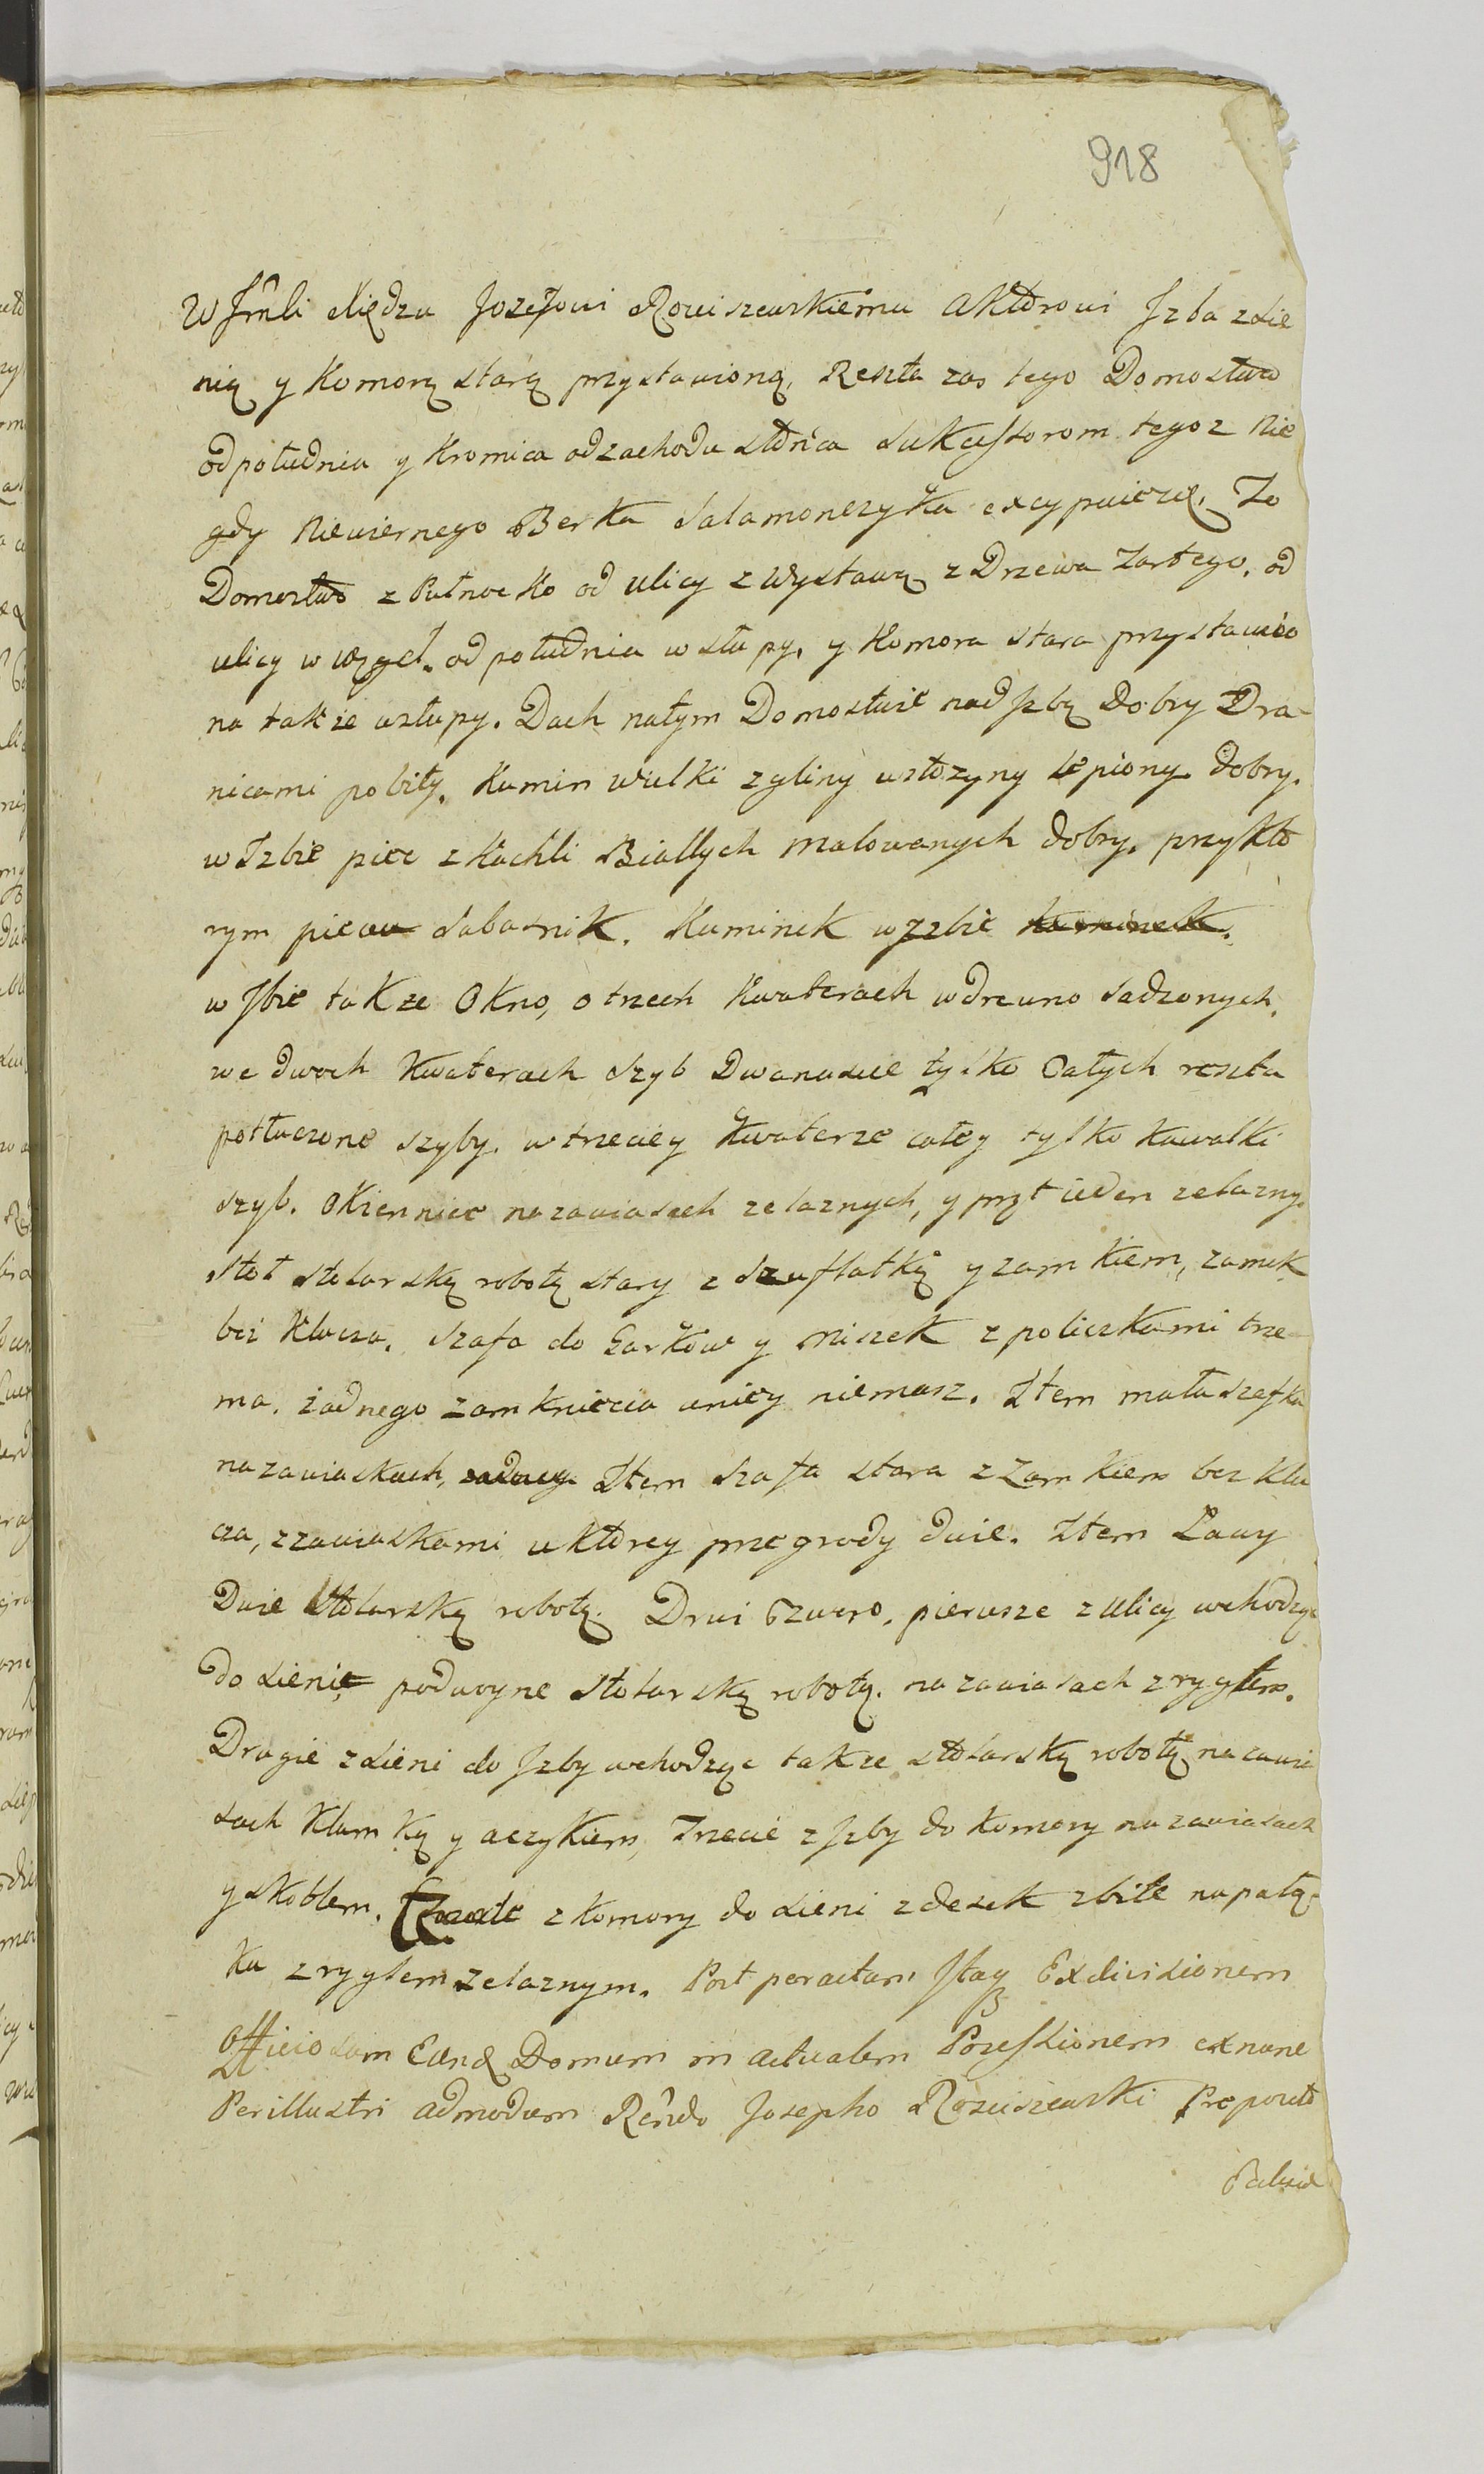 918
W Jmli Xiędzu Jozefowi Rosciszewskiemu Aktorowi Jzba z Sie
nią y Komorą starą przystawioną, Reszta zas tego Domostwa
od południa y Kromica od zachodu słońca Sukcessorom tegoz Nie
gdy Niewiernego Berka Salamonczyka excypuiesię. To
Domostwo od ulicy z Wystawą z Drzewa Tartego, od
ulicy w węgeł. od południa w słupy, y Komora stara przystawio
na takze w słupy. Dach natym Domostwie nad Jzbą Dobry Dra-
nicami pobity. Kumin wielki z gliny w stozyny lepiony dobry.
w Izbie piec z Kachli Biallych malowanych dobry, przy Kto
rym piecu Sabasnik. Kuminek w Jzbie kominek.
w Jbie takze Okno, o trzech Kwaterach w drewno sadzonych,
we dwoch Kwaterach Szyb Dwanascie tylko Całych reszta
potłuczone szyby. w trzeciey Kwaterze całey tylko Kawałki
szyb. Okiennice na zawiasach zelaznych, y pręt ieden zelazny.
Stoł Stolarską robotą stary z Szuflatką y zamkiem, zamek
bez Klucza. Szafa do Garkow y Miszek z policzkami trze-
ma, żadnego zamkniecia u niey niemasz. Item mała szafka
na zawiaskach, Item Szafa stara z Zamkiem bez Klu
cza, z zawiaskami u Ktorey przegrody dwie. Item Ławy
Dwie Stolarską robotą. Drwi Czworo, pierwsze z ulicy wchodząc
do Sienie podwoyne Stolarską robotą. na zawiasach z ryglem.
Drugie z Sieni do Jzby wchodząc takze stolarską robotą na zawia
sach Klamką y aczykiem, Trzecie z Jzby do Komory na zawiasach
y skoblem. z Komory do Sieni z desek zbite na pałą
ku z ryglem zelaznym. Post peractam Jtaq Exdivisionem
Officiosam Eand Domum in actualem Possessionem ex nunc
Perillustri admodum Rendo Josepho Rosciszewski Preposito